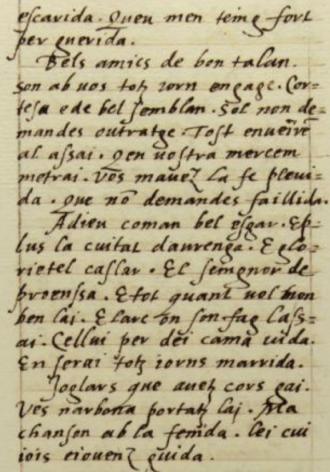 escarida. Queu men teing fort
per guerida.
Bels amics de bon talan.
son ab vos totz iorn engage. Cor=
tesa e de bel semblan. Sol non de=
mandes outratge. Tost en veirē
al assai. Qen vostra mercem
metrai. Vos mavez la fe plevi=
da. que nō demandes faillida.
Adieu coman bel esgar. E p̄=
lus la ciutat daurenga. E glo=
rietel caslar. E l seingnor de
proenssa. E tot quant vol mon
ben lai. E larc on son fag lass=
ai. Cellui perdei cama vida.
En serai totz iorns marrida.
Joglars que avetz cors gai.
Ves narbona portatz lai. Ma
chanson ab la fenida. Lei cui
iois e iovenz guida.